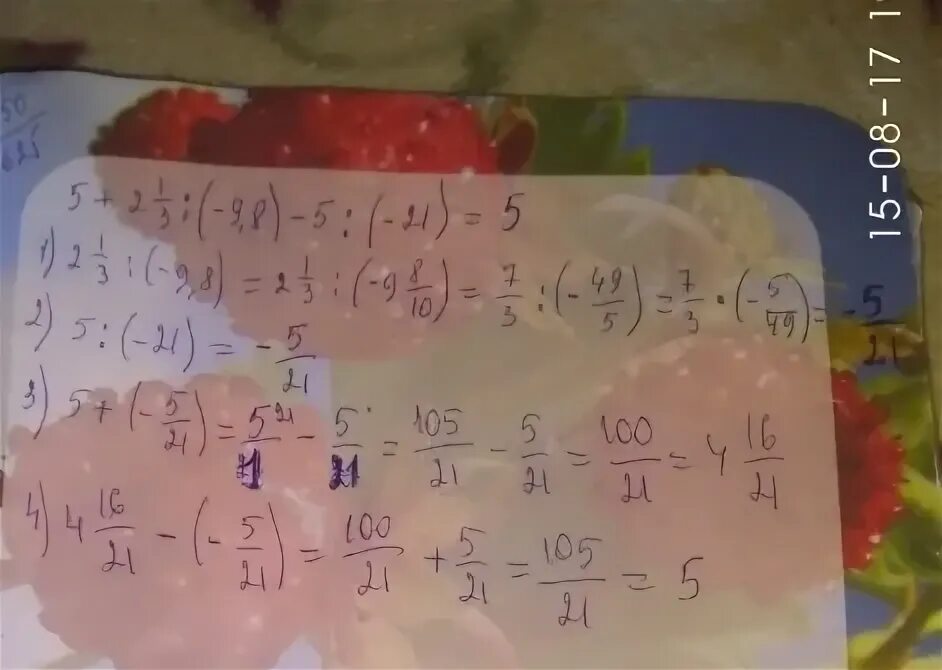 50/625
5 + 2 1/3 : (-9,8) - 5 : (-21) = 5
1) 2 1/3 : (-9,8) = 2 1/3 : (-9 8/10) = 7/3 : (- 49/5) = 7/3 · (- 5/49) = - 5/21
2) 5 : (-21) = - 5/21
3) 5 + (- 5/21) = 5^21/1 - 5/21 = 105/21 - 5/21 = 100/21 = 4 16/21
4) 4 16/21 - (- 5/21) = 100/21 + 5/21 = 105/21 = 5
15-08-17